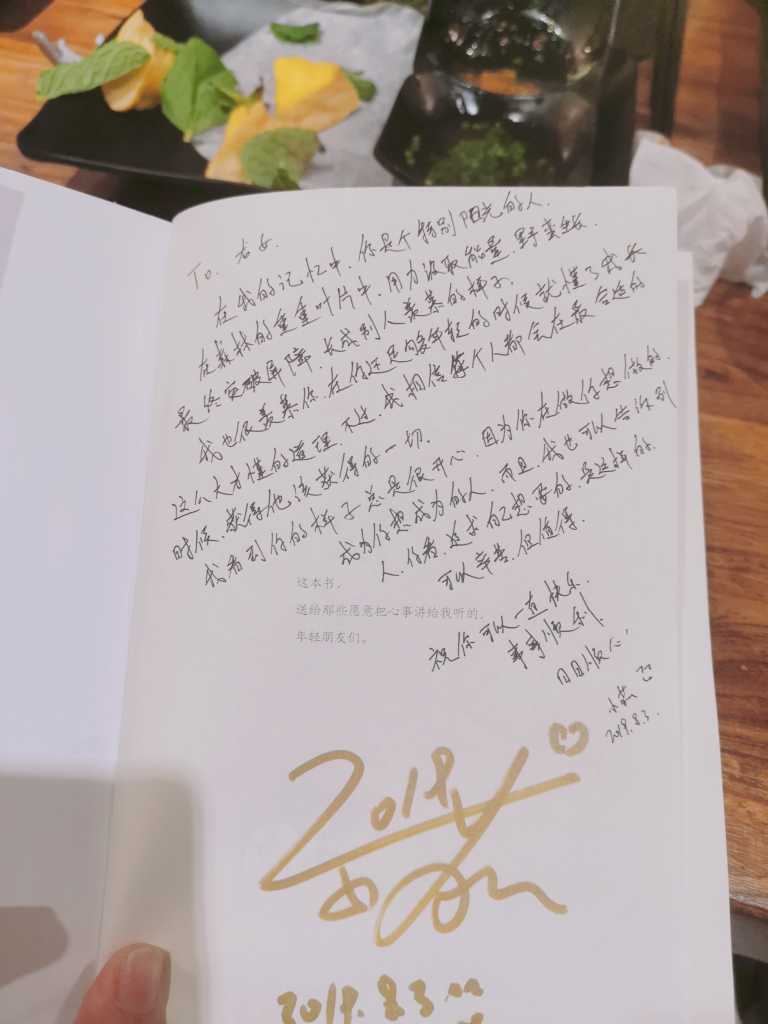 To.
在我的记忆中，你是个特别阳光的人．
在森林的重重叶片中，用力汲取能量，野蛮生长．
最终突破屏障，长成别人羡慕的样子．
我也很羡慕你，在你还足够年轻的时候就懂了成长
这么大才懂的道理．不过，我相信每个人都会在最合适的
时候，获得他该获得的一切．
我看到你的样子总是很开心，因为你在做你想做的．
成为你想成为的人．而且，我也可以告诉别
人，你看，追求自己想要的，是这样的．
可以辛苦，但值得．
这本书，
送给那些愿意把心事讲给我听的，
年轻朋友们。
祝你可以一直快乐．
事事顺利
日日顺心
2019.8.3.
2019
2019.8.3